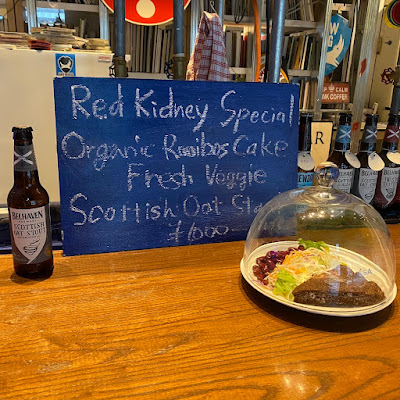 Red Kidney Special
Organic Rooibos Cake
Fresh Veggie
Scottish Oat
¥1000
BELHAVEN
SCOTTISH
OAT STOUT
CALM
DRINK COFFEE
BELHAVEN